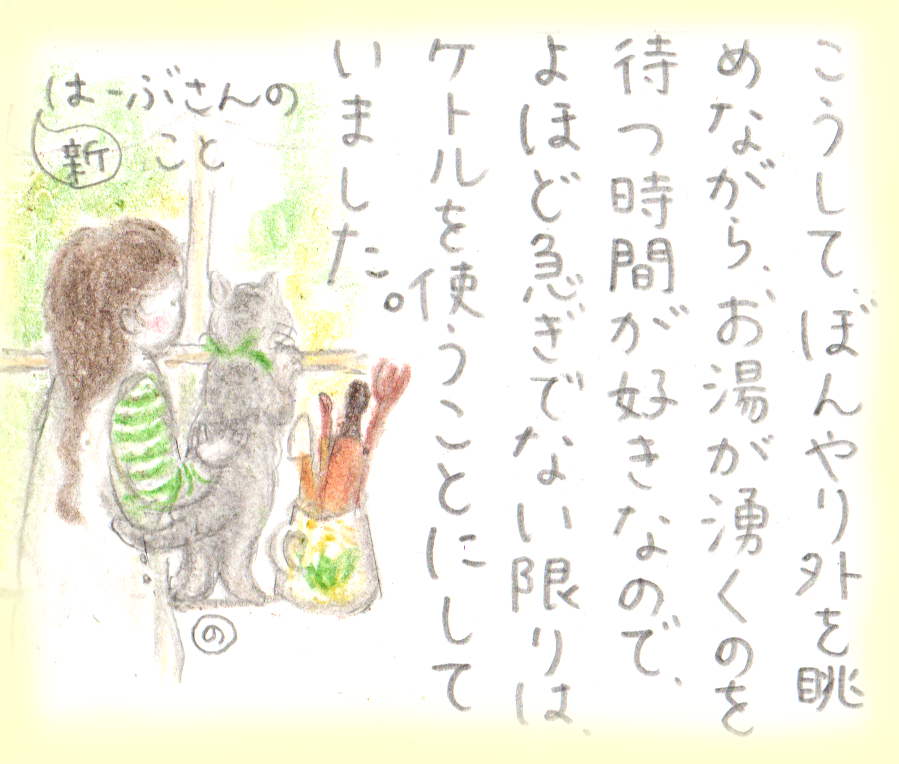 こうして、ぼんやり外を眺
めながら、お湯が湧くのを
待つ時間が好きなので、
よほど急ぎでない限りは、
ケトルを使うことにして
いました。
はーぶさんの
新 こと
の